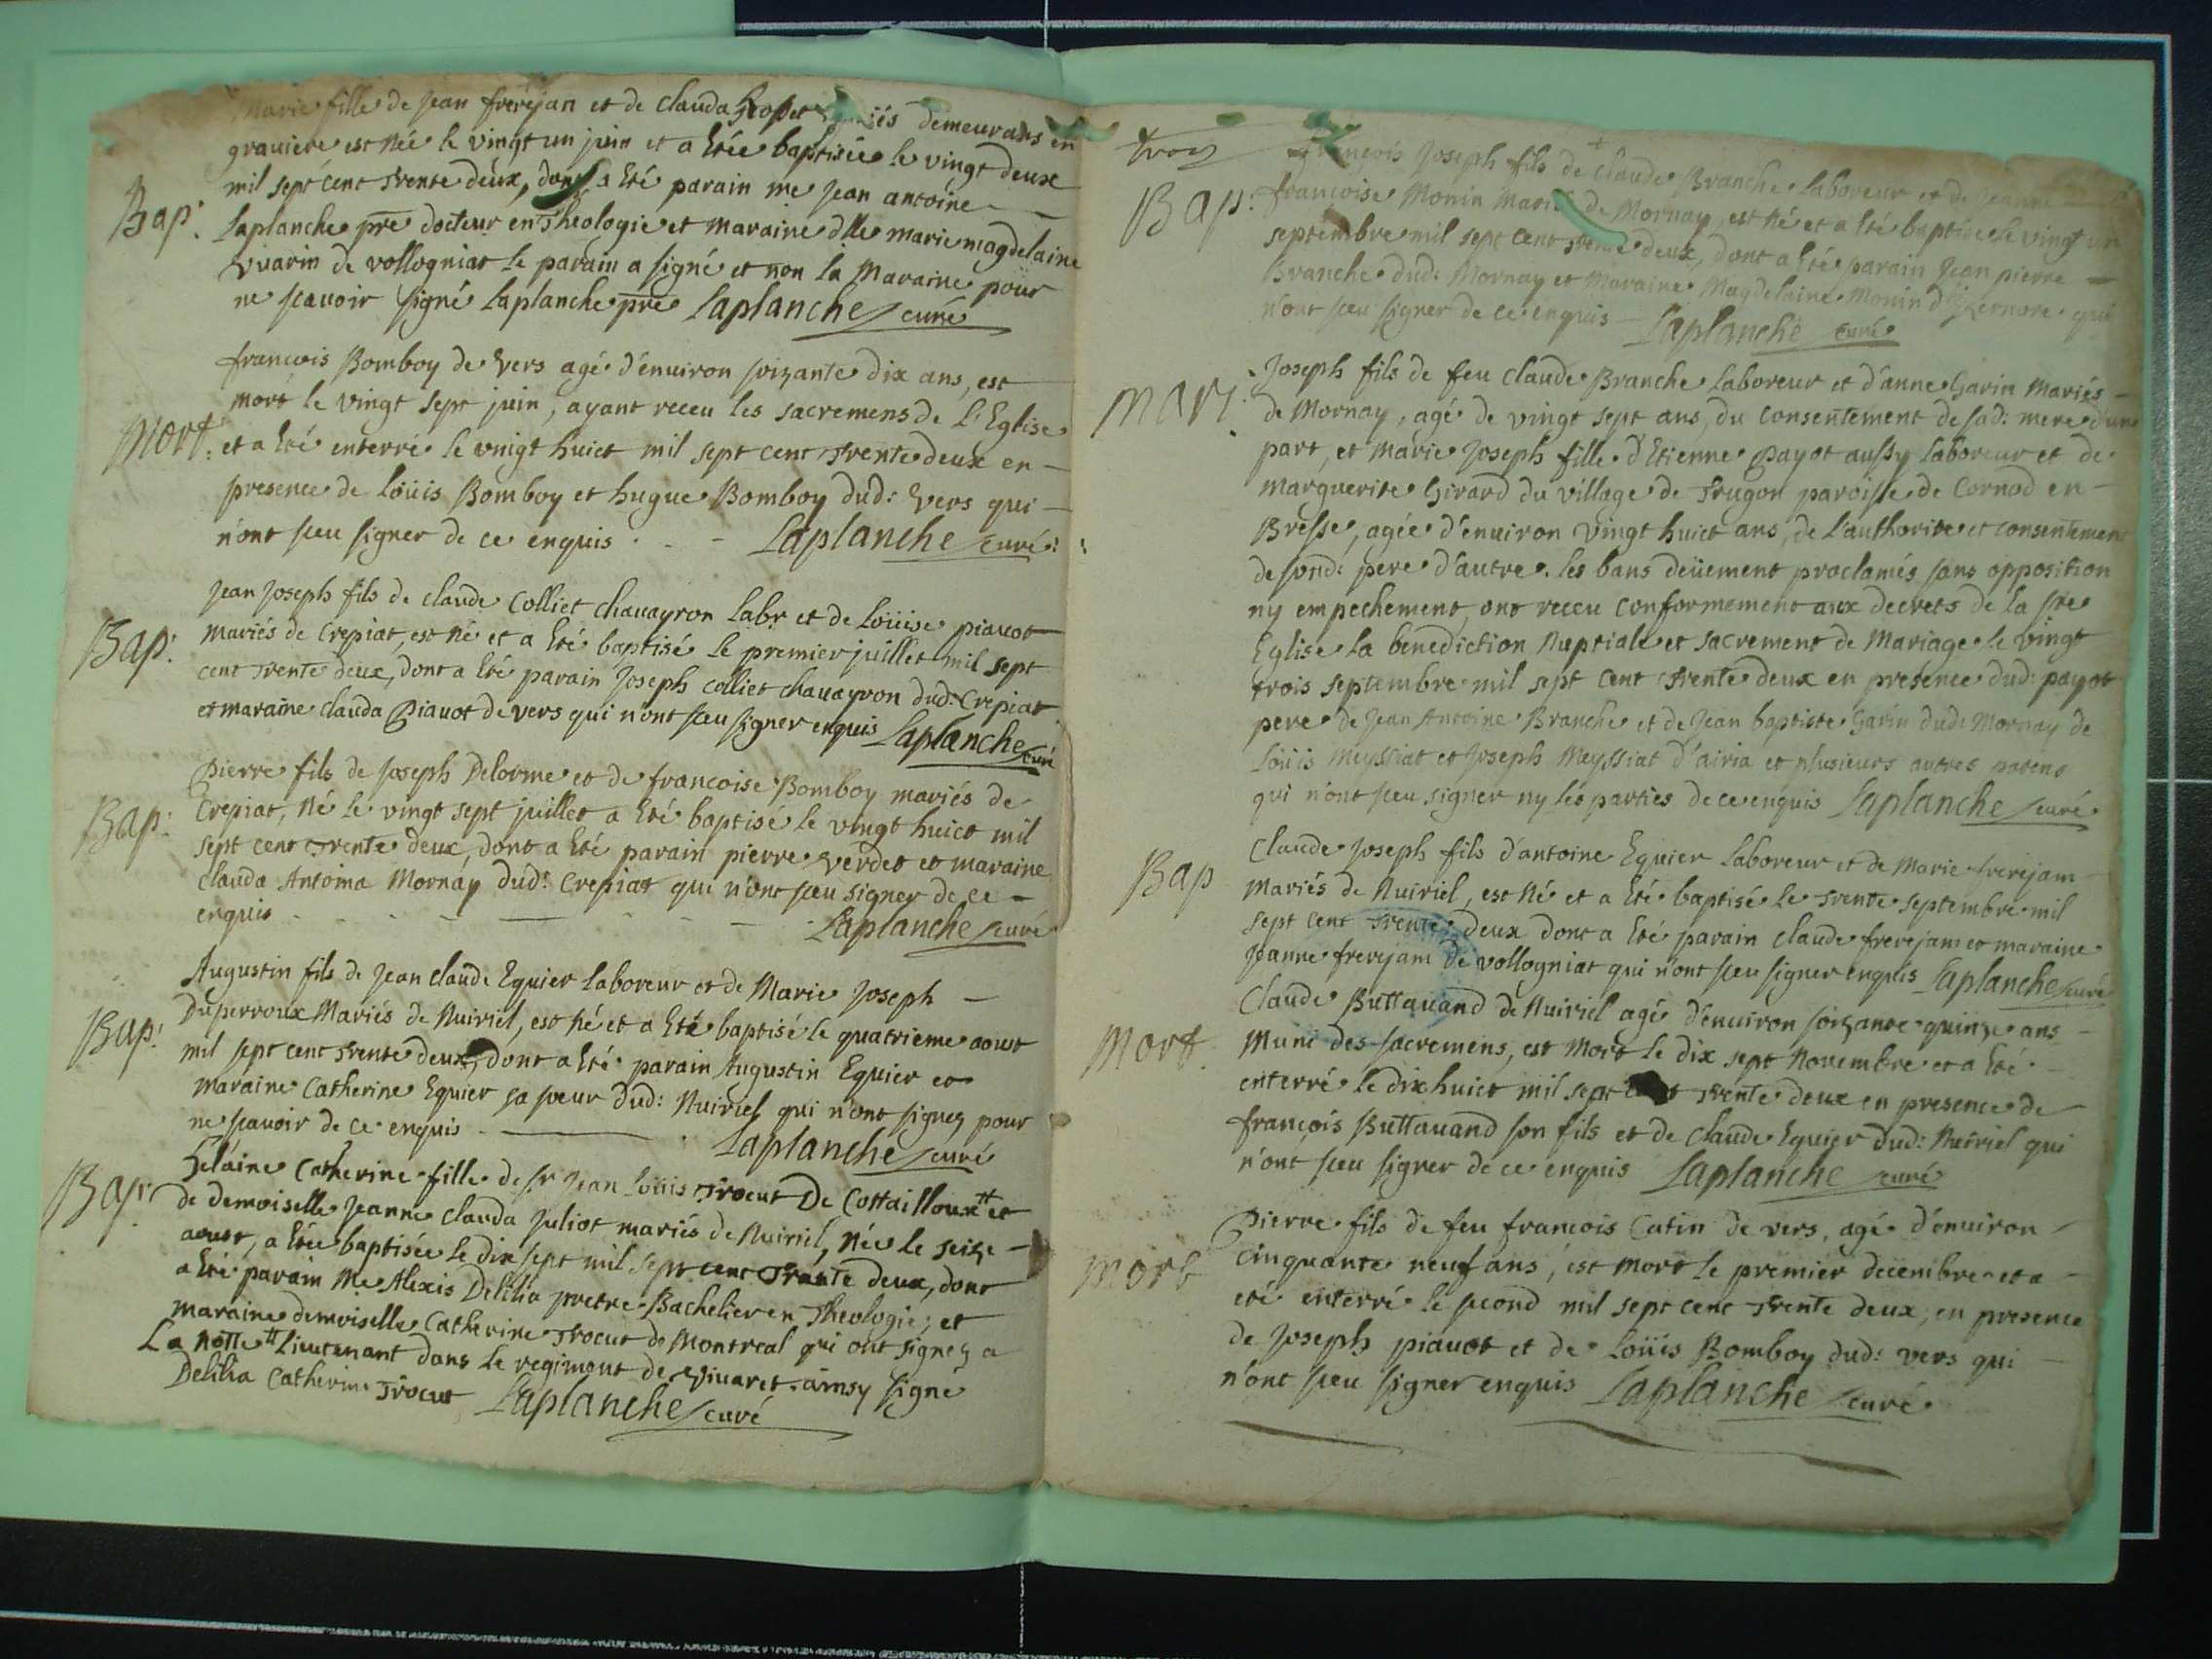 Marie fille de jean frerejan et de clauda demeurans en
graviere est née le vingt un juin et a étée baptisée le vingt deux
mil sept cent trente deux, dont a été parain me jean antoine
Bap: Laplanche pre docteur en Theologie et maraine dlle marie magdelaine
vuarin de vollogniat le parain a signé et non la Maraine pour
ne scavoir signé Laplanche pre Laplanche curé
francois Bomboy de Vers agé d'énuiron soizante dix ans, est
mort le vingt sept juin, ayant receu les sacremens de L'Eglise
Mort: et a été enterré le vingt huict mil sept cent trente deux en
presence de loüis Bomboy et hugue Bomboy dud: Vers qui
n'ont sceu signer de ce enquis Laplanche curé
Jean Joseph fils de claude Colliet chauayron labr et de loüise piauot
Bap: mariés de Crepiat, est né et a été baptisé le premier juillet mil sept
cent trente deux, dont a été parain Joseph colliet chauayron dud: Crepiat
et maraine clauda Piauot de vers qui n'ont sceu signer enquis Laplanche curé
Pierre fils de joseph Delorme et de francoise Bomboy mariés de
Bap: Crepiat, né le vingt sept juillet a été baptisé le vingt huict mil
sept cent trente deux, dont a été parain pierre verdet et maraine
clauda Antoina Mornay dud: Crepiat qui n'ont sceu signer de ce
enquis Laplanche curé
Augustin fils de jean claude Equier laboreur et de Marie Joseph
Bap: Duperroux Mariés de Nuiriel, est né et a été baptisé le quatrieme aoust
mil sept cent trente deux, dont a été parain Augustin Equier et
maraine Catherine Equier sa soeur dud: Nuiriel qui n'ont signez pour
ne scauoir de ce enquis Laplanche curé
Bap: Helaine Catherine fille de sr jean loüis Trocut De Cottailloux # et
de demoiselle jeanne clauda Juliot mariés de Nuiriel, née le seize
aoust, a étée baptisée le dix sept mil sept cent trante deux, dont
a été parain Me Alexis Delilia pretre Bachelier en Theologie, et
maraine demoiselle Catherine Trocut de Montreal qui ont signez a
La notte # lieutenant dans le regiment de vivaret. ainsy signé
Delilia Catherine Trocut Laplanche curé
trois
françois Joseph fils de claude Branche laboreur et de jeanne
Bap: francoise Monin Mariés de Mornay, est né et a été baptisé le vingt un
septembre mil sept cent trente deux, dont a été parain Jean pierre
Branche dud: Mornay et Maraine Magdelaine Monin d'Izernore qui
n'ont sceu signer de ce enquis Laplanche curé
Joseph fils de feu claude Branche laboreur et d'anne Garin Mariés
Mari: de Mornay, agé de vingt sept ans, du consentement de sad: mere d'une
part, et marie Joseph fille d'Etienne Payot aussy laboreur et de
marguerite Girard du village de Trugon paroisse de Cornod en
Bresse, agée d'enuiron Vingt huict ans, de l'authorite et consentement
de sond: pere d'autre. les bans deüement proclamés sans opposition
ny empechement, ont receu conformement aux decrets de la ste
Eglise la benediction Nuptiale et sacrement de Mariage le vingt
trois septembre mil sept cent trente deux en presence dud: payot
pere de jean Antoine Branche et de jean baptiste Garin dud: Mornay de
loüis Meyssiat et joseph Meyssiat d'airia et plusieurs autres parens
qui n'ont sceu signer ny les parties de ce enquis Laplanche curé
Claude Joseph fils d'antoine Equier laboreur et de Marie frerejam
Bap mariés de Nuiriel, est né et a été baptisé le trente septembre mil
sept cent trente deux dont a été parain claude frerejam et maraine
jeanne frerejam de vollogniat qui n'ont sceu signer enquis Laplanche curé
Claude Buttauand de Nuiriel agé d'enuiron soizante quinze ans
Mort. Muni des sacremens, est Mort le dix sept Novembre et a été
enterré le dix huict mil sept cent trente deux en presence de
françois Buttauand son fils et de claude Equier dud: Nuiriel qui
n'ont sceu signer de ce enquis Laplanche curé
Pierre fils de feu francois Catin de vers, agé d'énuiron
Mort cinquante neuf ans, est mort le premier decembre et a
eté enterré le second mil sept cent trente deux, en presence
de Joseph piauot et de loüis Bomboy dud: vers qui
n'ont sceu signer enquis Laplanche curé